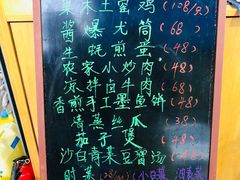 果木土窑鸡(108/只)
酱爆尤筒(68)
生蚝煎蛋(48)
农家小炒肉(48)
凉拌卤牛肉(68)
香煎手工墨鱼饼(48)
清蒸丝瓜(38)
茄子煲(48)
沙白青菜豆腐汤(48)
时菜(28/) (小白菜 油麦菜